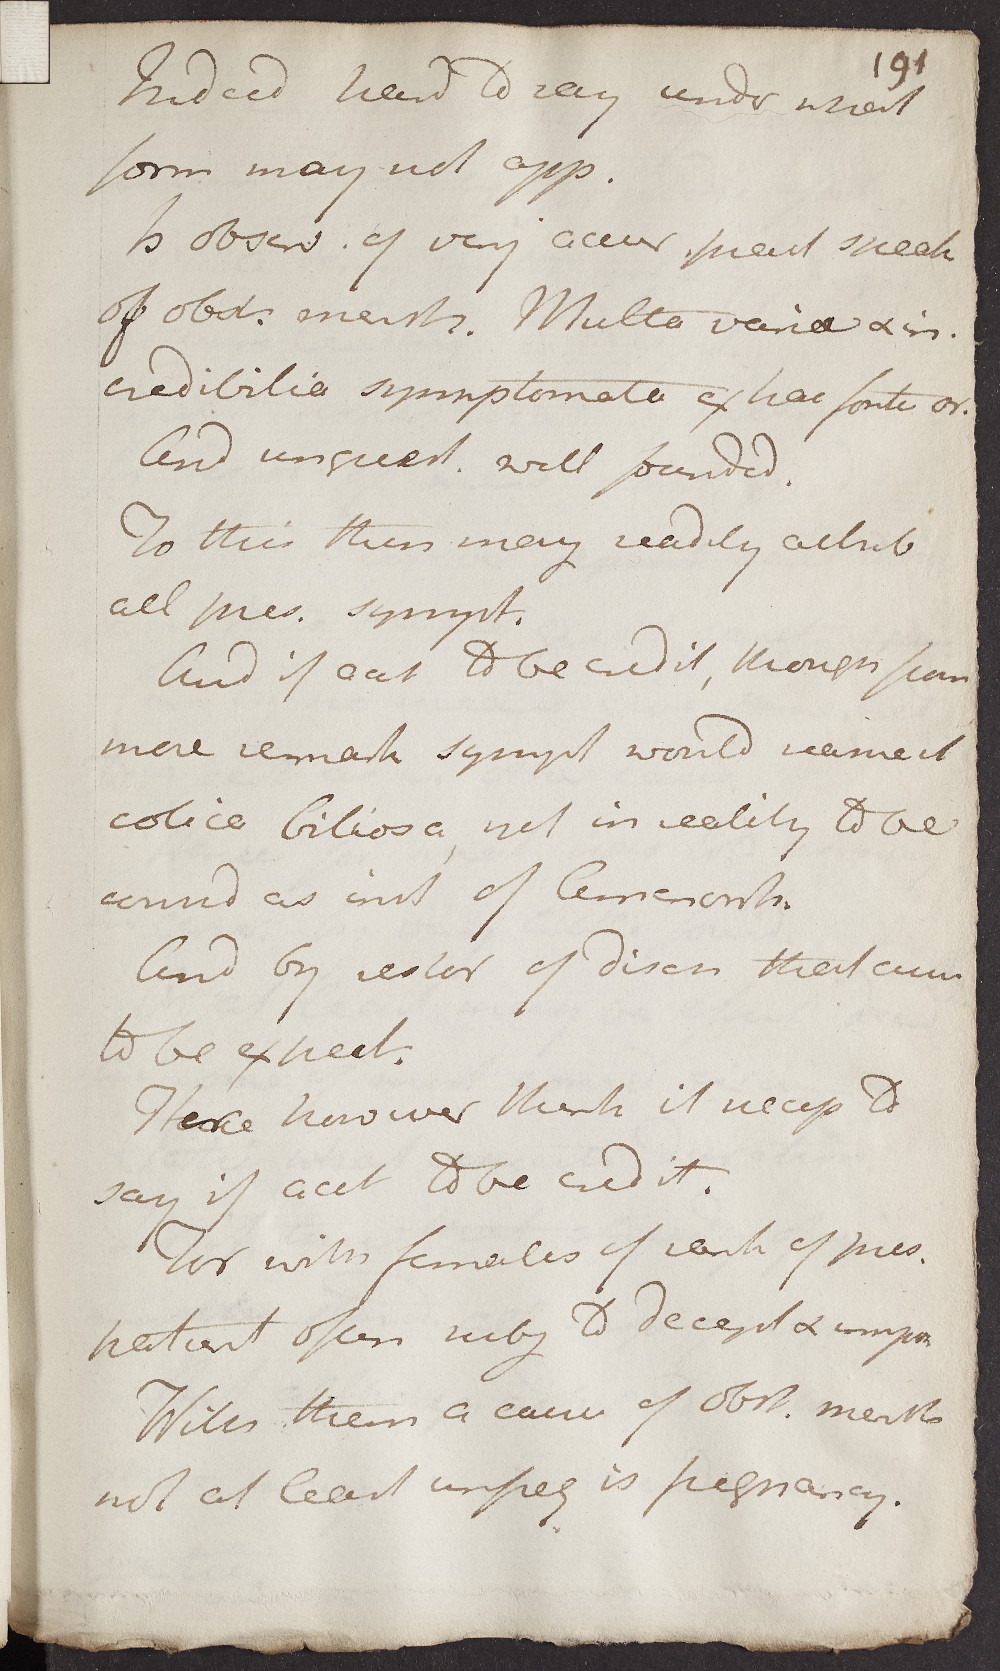 191
Indeed hard to say under what
form may not app.
Is observ. of very accur. pract speak
of obst. menst. Multa varia & in.
credibilia symptomata ex hac fonte or.
And unquest. well founded.
To this then may readily attrib
all pres. sympt.
And if act to be credit, though from
more remark sympt would
colica biliosa, yet in reality to be
consid as inst of Amenorrh.
And by restor of disch that cure
to be expect.
Here however think it necess to
say if acct to be credit.
For with females of rank of pres.
patient often subj to decept & impos
With them a cause of obst. menst
not at least unfreq is pregnancy.